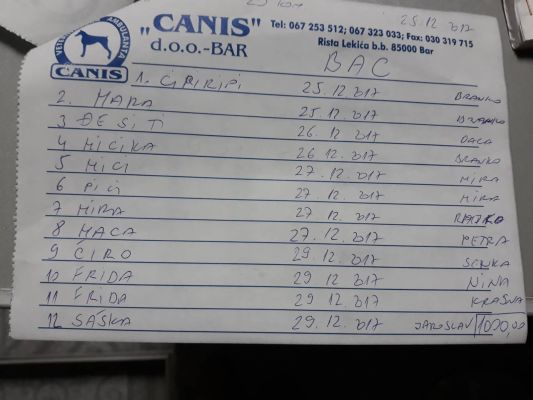 25 kom
25.12 2017
VETERINARSKA AMBULANTA
CANIS
„CANIS"
d.o.o.-BAR
Tel: 067 253 512; 067 323 033; Fax: 030 319 715
Rista Lekića b.b. 85000 Bar
BAC
1. ĆIRIRIPI 25.12.2017 BRANKO
2. MARA 25.12 2017 BRANKO
3 ĐE SI TI 26.12.2017 DACA
4 MICIKA 26 12.2017 BRANKO
5 MICI 27.12.2017 MIRA
6 PICI 27 12.2017 MIRA
7 MIRA 27.12.2017 RATKO
8 MACA 27.12.2017 PETRA
9 ĆIRO 29.12.2017
10 FRIDA 29 12.2017 NINA
11 FRIDA 29 12.2017
12 SAŠKA 29.12.2017 JAROSLAV 1000,00